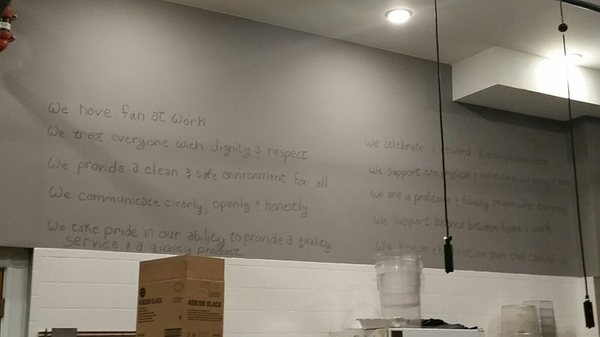 We have fun at work
We treat everyone with dignity & respect
We provide a clean & safe environment for all
We communicate clearly, openly & honestly
We take pride in our ability to provide a quality
service & a quality product
We celebrate & reward accomplishments
We support the physical & emotional well being
We are a profitable & fiscally responsible company
We support balance between home & work
We honor the relation ships that
BLACK